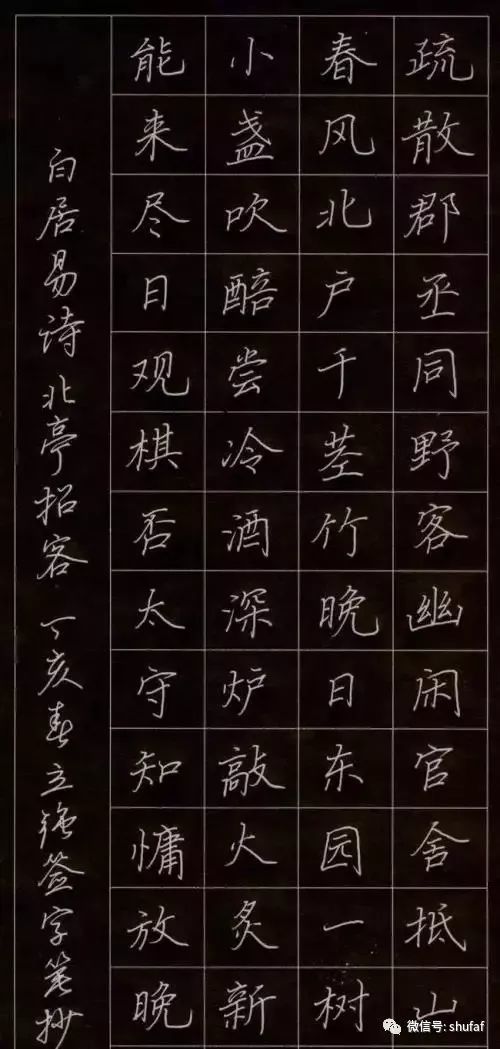 疏散郡丞同野客幽闲官舍抵山
春风北户千茎竹晚日东园一树
小盏吹醅尝冷酒深炉敲火炙新
能来尽日观棋否太守知慵放晚
白居易诗北亭招客 丁亥春立强签字笔抄
微信号: shufaf